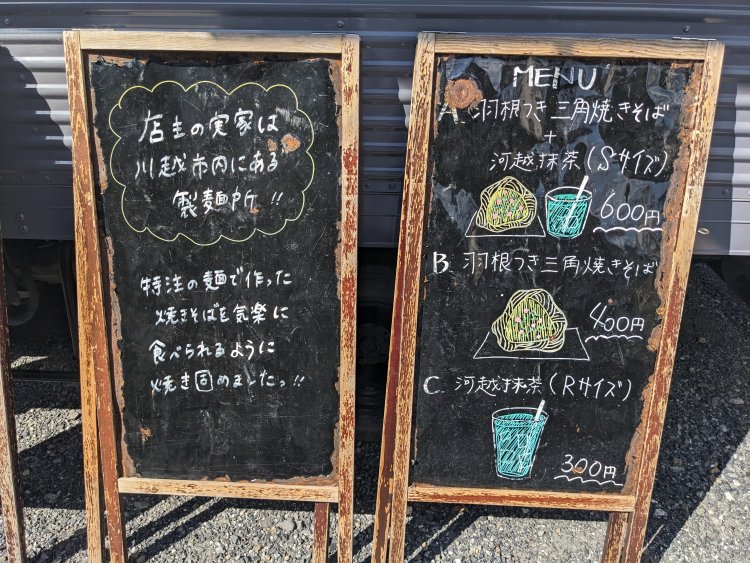 店主の実家は
川越市内にある
製麺所!!
特注の麺で作った
焼きそばを気楽に
食べられるように
焼き固めましたっ!!
MENU
A 羽根つき三角焼きそば
+
河越抹茶(Sサイズ)
600円
B 羽根つき三角焼きそば
400円
C 河越抹茶(Rサイズ)
300円